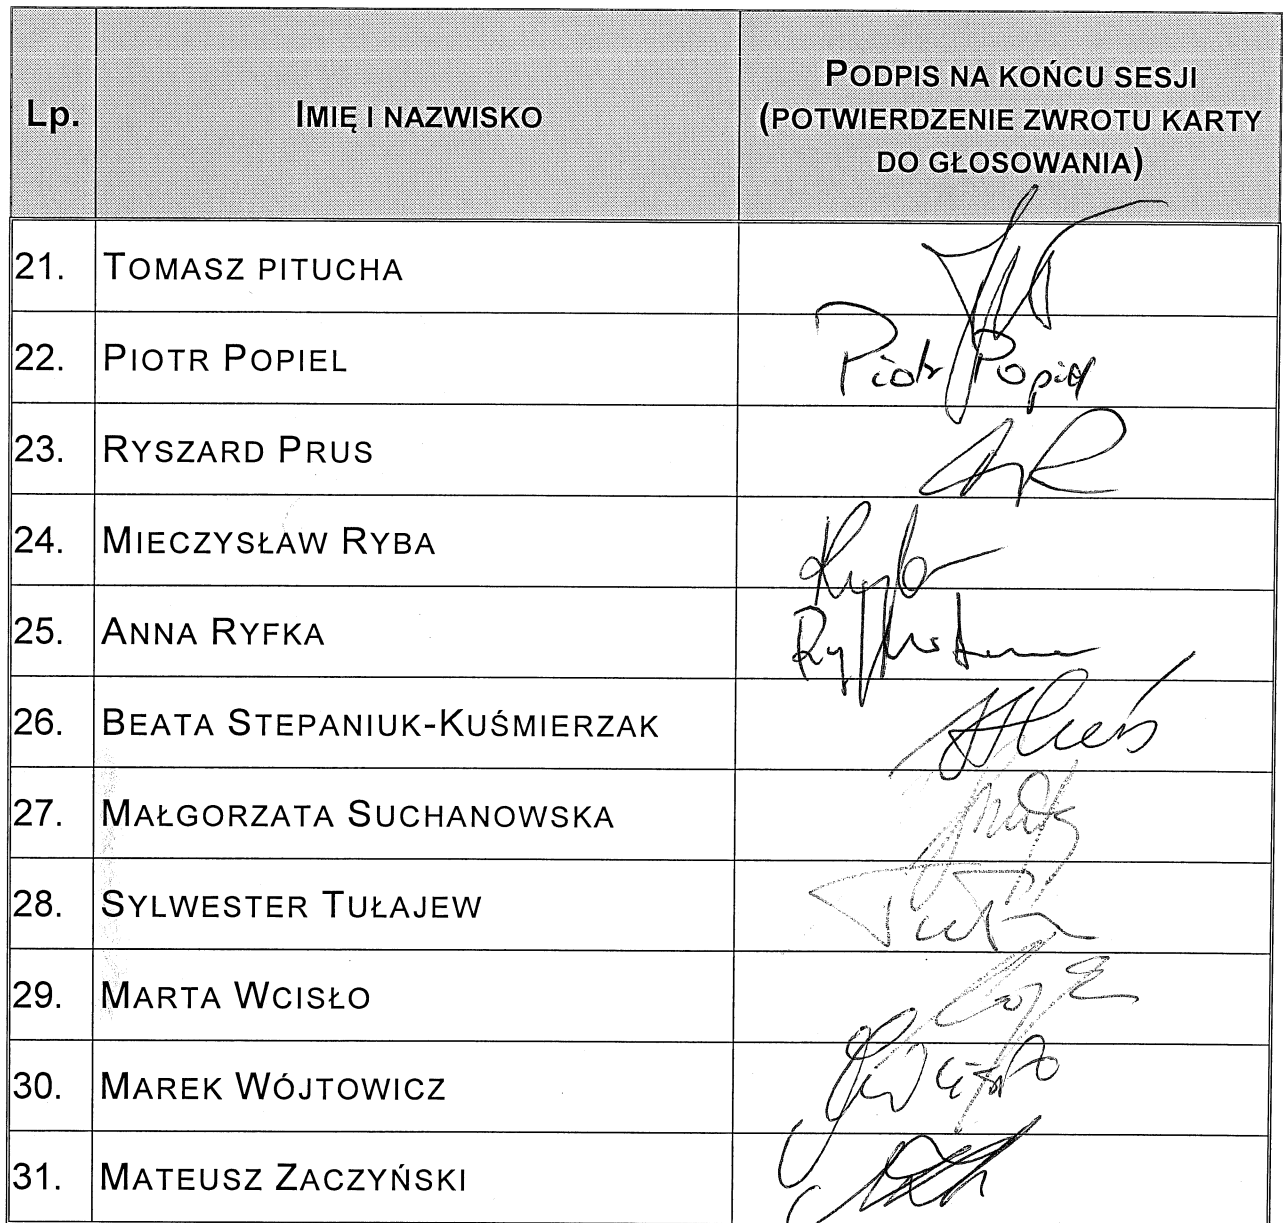 Lp.
IMIĘ I NAZWISKO
PODPIS NA KOŃCU SESJI
(POTWIERDZENIE ZWROTU KARTY
DO GŁOSOWANIA)
21. TOMASZ PITUCHA
22. PIOTR POPIEL Piotr Popiel
23. RYSZARD PRUS
24. MIECZYSŁAW RYBA
25. ANNA RYFKA
26. BEATA STEPANIUK-KUŚMIERZAK
27. MAŁGORZATA SUCHANOWSKA
28. SYLWESTER TUŁAJEW
29. MARTA WCISŁO
30. MAREK WÓJTOWICZ
31. MATEUSZ ZACZYŃSKI